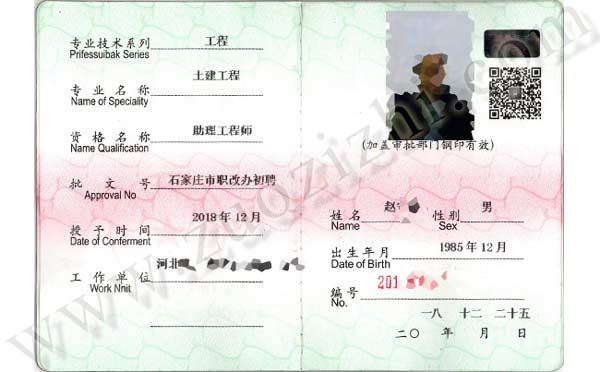 专业技术系列 工程
Prifessuibak Series
土建工程
专业名称
Name of Speciality
资格名称 助理工程师
Name Qualification
批文号 石家庄市职改办初聘
Approval No
授予时间 2018年12月
Date of Conferment
工作单位 河北
Work Nnit
(加盖审批部门钢印有效)
姓名 赵 性别 男
Name Sex
出生年月 1985年12月
Date of Birth
编号 201
No.
一八 十二 二十五
二〇 年 月 日
www.zuozizhi.com